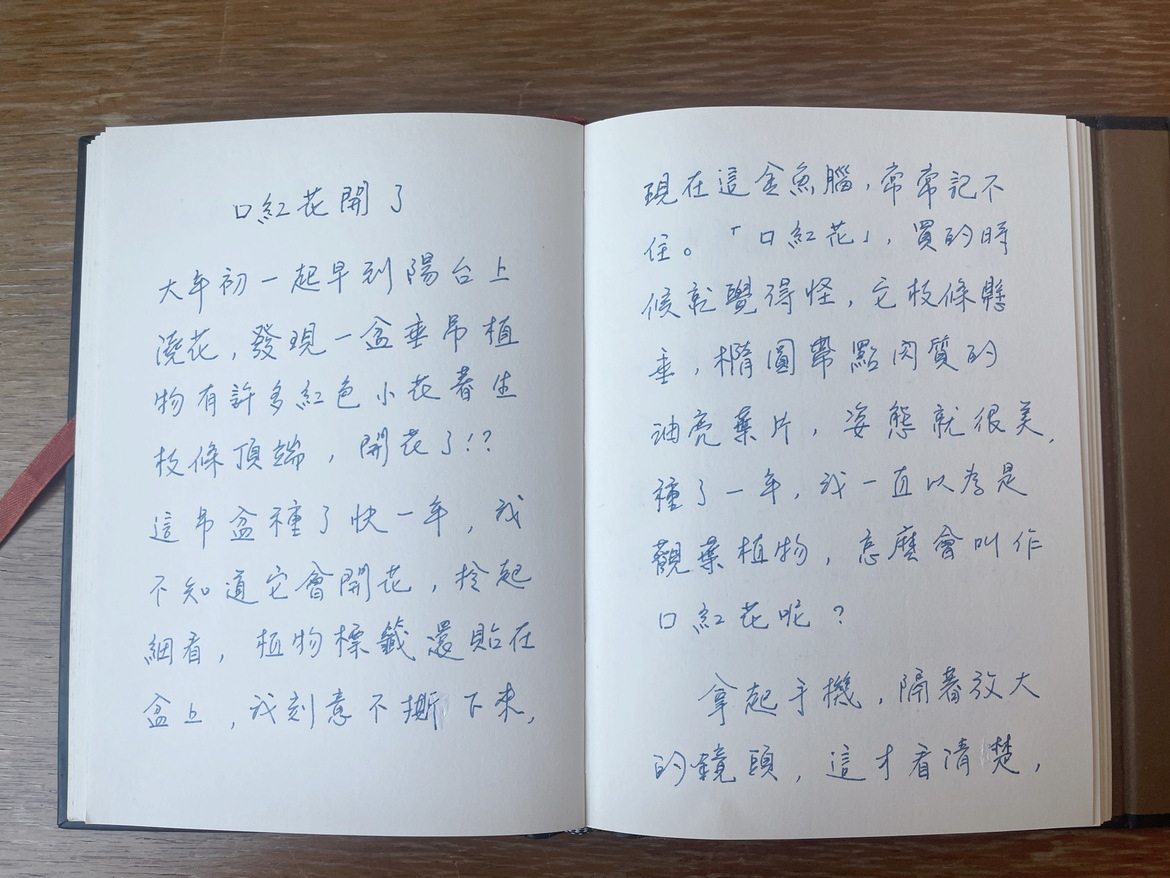 口紅花開了
大年初一起早到陽台上
澆花，發現一盆垂吊植
物有許多紅色小花著生
枝條頂端，開花了!?
這吊盆種了快一年，我
不知道它會開花，拎起
細看，植物標籤還貼在
盆上，我刻意不撕下來，
現在這金魚腦，常常記不
住。「口紅花」，買的時
候就覺得怪，它枝條懸
垂，橢圓帶點肉質的
油亮葉片，姿態就很美，
種了一年，我一直以為是
觀葉植物，怎麼會叫作
口紅花呢？
拿起手機，隔著放大
的鏡頭，這才看清楚，